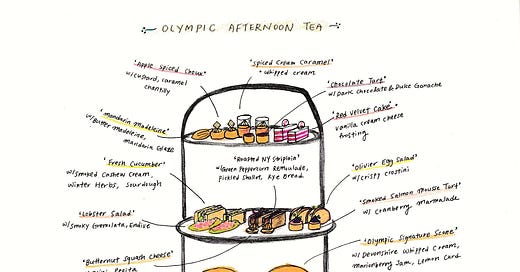 OLYMPIC AFTERNOON TEA
'Apple Spiced Choux'
w/custard, caramel
chantilly
'Spiced Cream Caramel'
+ whipped cream
'Chocolate Tart'
w/ Dark Chocolate & Duke Ganache
'Red Velvet Cake'
vanilla cream cheese
frosting
'Mandarin Madeleine'
w/Butter Madeleine,
mandarin Glaze
'Fresh Cucumber'
w/smoked Cashew Cream,
Winter Herbs, Sourdough
'Roasted NY Striploin'
w/Green Peppercorn Remoulade,
Pickled Shallot, Rye Bread
'Olivier Egg Salad'
w/crispy crostini
'Smoked Salmon Mousse Tart'
w/ cranberry marmalade
'Lobster Salad'
w/smoky Gremolata, Endive
'Butternut Squash Cheese'
'Olympic Signature Scone'
w/ Devonshire Whipped Cream,
Marionberry Jam, Lemon Curd